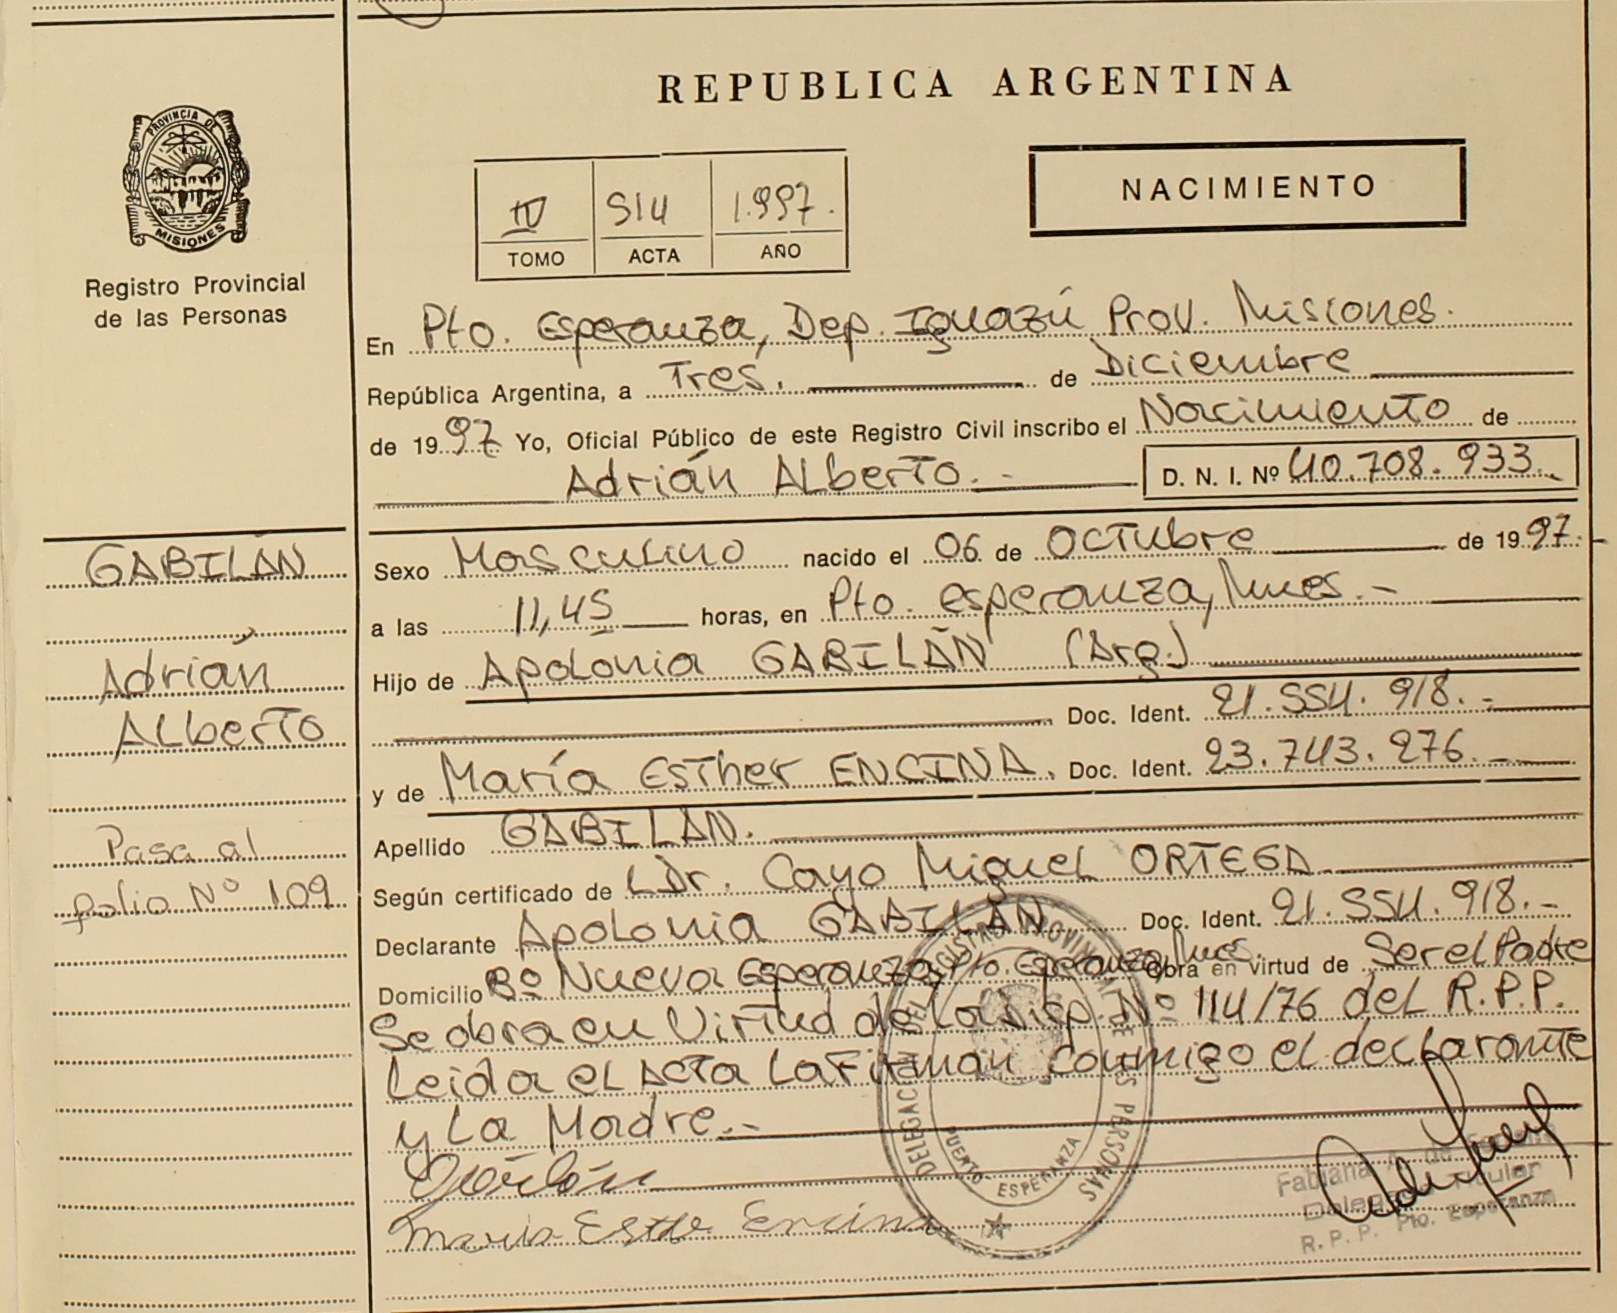 REPUBLICA ARGENTINA
PROVINCIA DE
MISIONES
Registro Provincial
de las Personas
NACIMIENTO
IV 514 1.997.
TOMO ACTA AÑO
En Pto. Esperanza, Dep. Iguazú Prov. Misiones.
República Argentina, a Tres. de Diciembre
de 1997 Yo, Oficial Público de este Registro Civil inscribo el Nacimiento de
Adrián ALberto.- D. N. I. Nº 40.708.933.
GABILÁN
Adrián
ALberTo
Pasa al
folio Nº 109
Sexo Masculino nacido el 06 de OCTubre de 1997.
a las 11,45 horas, en Pto. esperanza, Mnes.-
Hijo de Apolonia GABILÁN (Arg.)
Doc. Ident. 21.554.918.-
y de María EsTher ENCINA. Doc. Ident. 23.743.276.-
Apellido GABILÁN.
Según certificado de LDr. Cayo Miguel ORTEGA
Declarante Apolonia GABILÁN Doc. Ident. 21.554.918.-
Domicilio Bº Nueva Esperanza, Pto. Esperanza, Mnes. Obra en virtud de Ser el Padre
Se obra en Virtud de La Disp. Nº 114/76 del R.P.P.
Leida el Acta La Firman conmigo el declarante
y La Madre.-
Maria Esther Encina
DELEGACION DEL REGISTRO PROVINCIAL DE LAS PERSONAS
PUERTO ESPERANZA
Fabiana
Delegada Titular
R. P. P. Pto. Esperanza